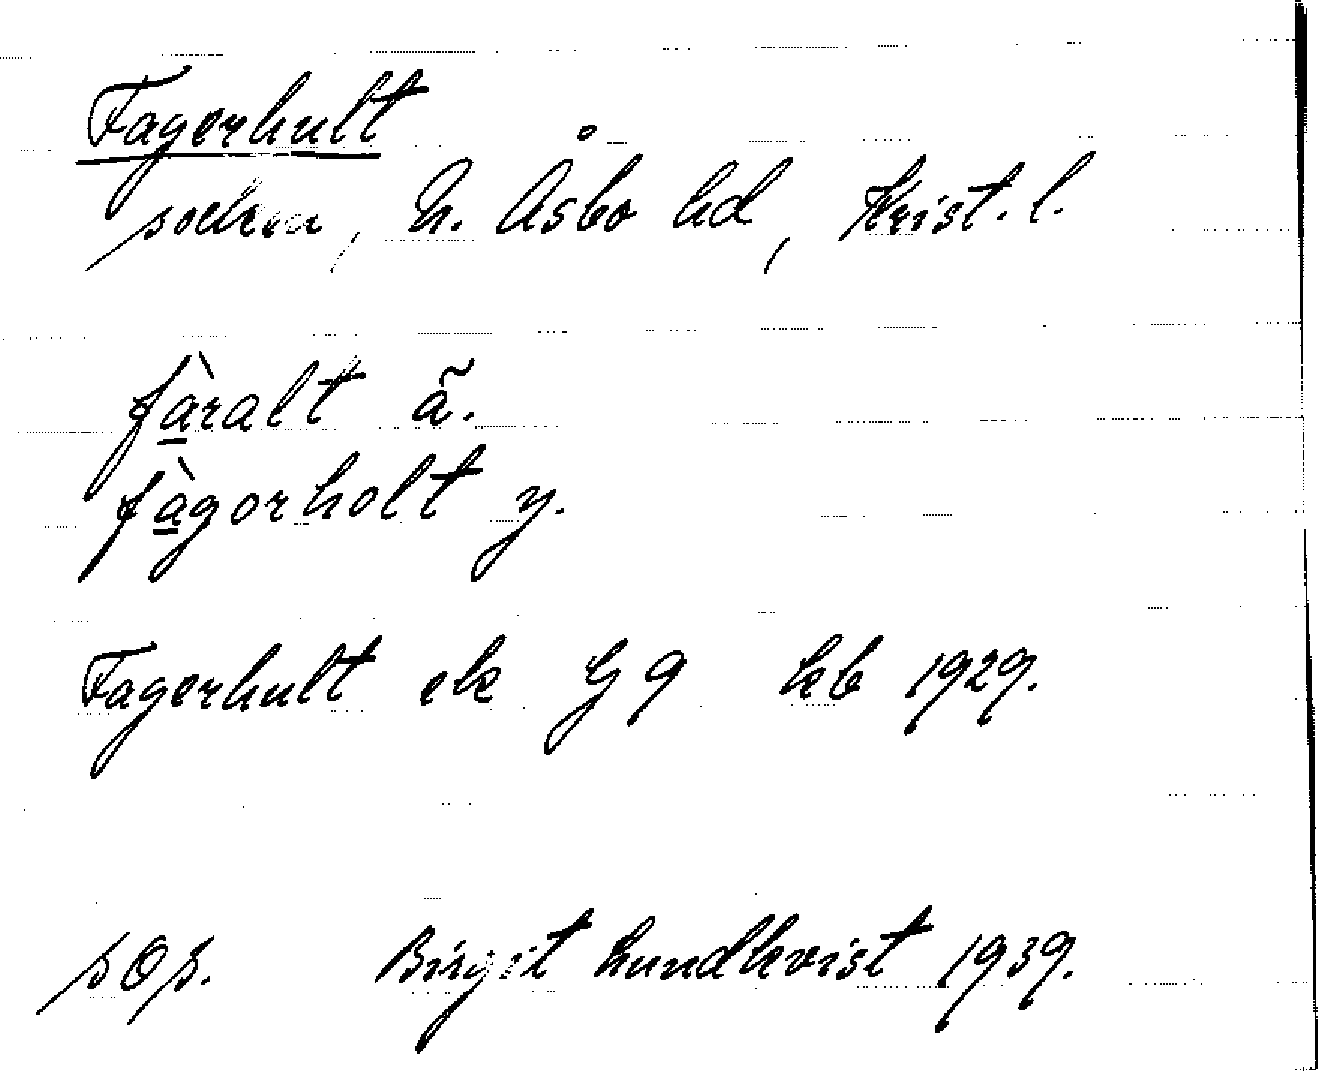 Fagerhult
socken, N. Åsbo hd, Krist. l.
fà̲ralt ã.
fà̲gorholt y.
Fagerhult ek G 9 kb 1929.
sOs. Birgit Lundkvist 1939.